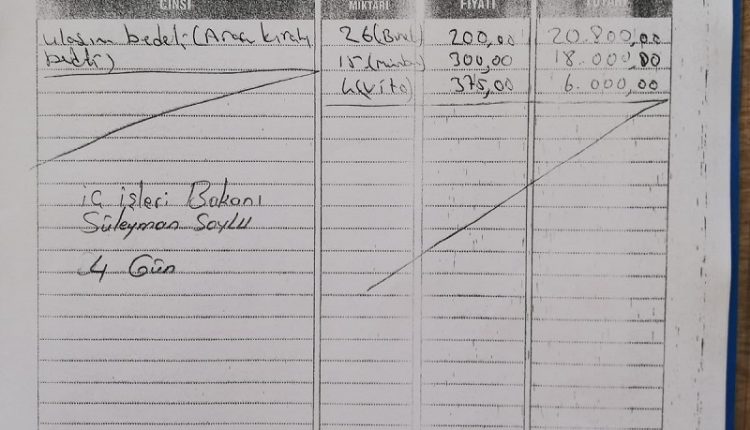 CİNSİ MİKTARI FİYATI TUTARI
ulaşım bedeli (Araç kira 26 (Binek) 200,00 20.800,00
bedeli) 15 (minibüs) 300,00 18.000,00
4 (Vito) 375,00 6.000,00
iç işleri Bakanı
Süleyman Soylu
4 Gün